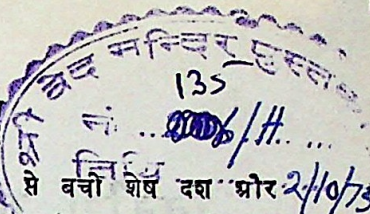 वेद मन्दिर पुस्त
135
नं ...../H.....
तिथि
से बची शेष दश और 2/10/73